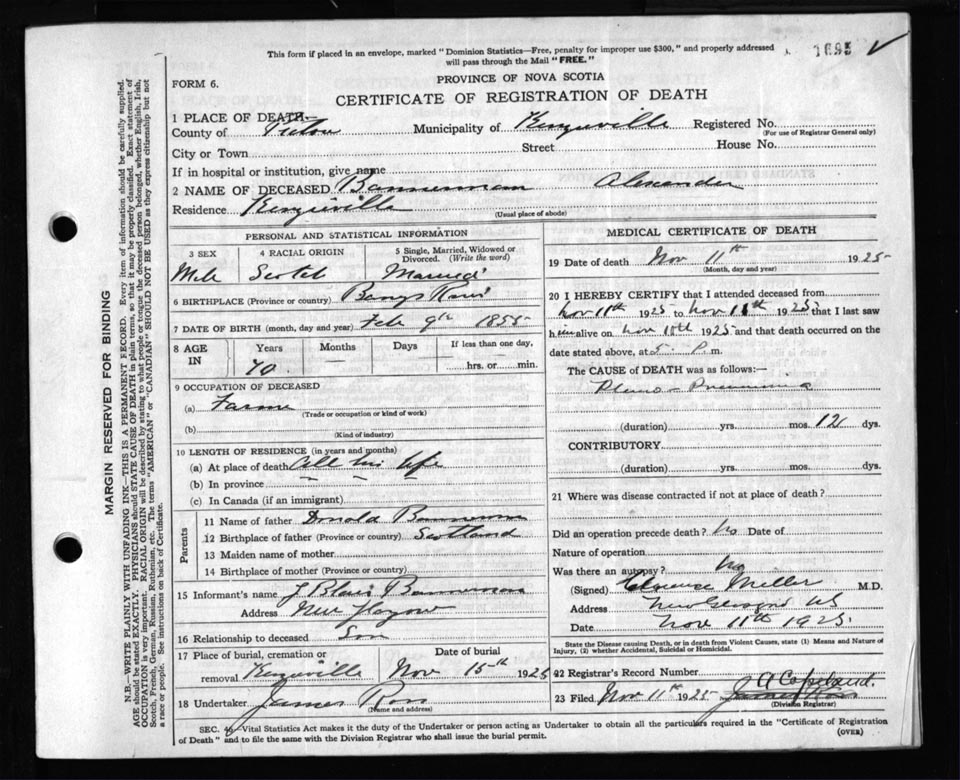 This form if placed in an envelope, marked "Dominion Statistics—Free, penalty for improper use $300," and properly addressed
will pass through the Mail "FREE."
1695
FORM 6.
PROVINCE OF NOVA SCOTIA
CERTIFICATE OF REGISTRATION OF DEATH
1 PLACE OF DEATH—
County of Pictou Municipality of Kenzieville Registered No.
(For use of Registrar General only)
City or Town Street House No.
If in hospital or institution, give name
2 NAME OF DECEASED Bannerman Alexander
Residence Kenzieville
(Usual place of abode)
PERSONAL AND STATISTICAL INFORMATION
3 SEX 4 RACIAL ORIGIN 5 Single, Married, Widowed or
Divorced. (Write the word)
Male Scotch Married
6 BIRTHPLACE (Province or country)
7 DATE OF BIRTH (month, day and year) Feb 9th 1855
8 AGE IN Years Months Days If less than one day,
70 hrs. or min.
9 OCCUPATION OF DECEASED
(a) Farmer
(Trade or occupation or kind of work)
(b)
(Kind of industry)
10 LENGTH OF RESIDENCE (in years and months)
(a) At place of death All his life
(b) In province
(c) In Canada (if an immigrant)
Parents
11 Name of father Donald Bannerman
12 Birthplace of father (Province or country) Scotland
13 Maiden name of mother
14 Birthplace of mother (Province or country)
15 Informant's name J Blair Bannerman
Address New Glasgow
16 Relationship to deceased Son
17 Place of burial, cremation or Date of burial
removal Kenzieville Nov 15th 1925
18 Undertaker James Ross
(Name and address)
MEDICAL CERTIFICATE OF DEATH
19 Date of death Nov 11th 1925
(Month, day and year)
20 I HEREBY CERTIFY that I attended deceased from
Nov 1925 to Nov 1925 that I last saw
him alive on Nov 10th 1925 and that death occurred on the
date stated above, at 5 P m.
The CAUSE of DEATH was as follows:—
Pleuro-Pneumonia
(duration) yrs. mos. 12 dys.
CONTRIBUTORY
(duration) yrs. mos. dys.
21 Where was disease contracted if not at place of death?
Did an operation precede death? No Date of
Nature of operation
Was there an autopsy? No
(Signed) Clarence Miller M.D.
Address New Glasgow NS
Date Nov 11th 1925
State the Disease causing Death, or in death from Violent Causes, state (1) Means and Nature of
Injury, (2) whether Accidental, Suicidal or Homicidal.
22 Registrar's Record Number
A Copeland.
23 Filed Nov 11th 1925 James Ross
(Division Registrar)
SEC. Vital Statistics Act makes it the duty of the Undertaker or person acting as Undertaker to obtain all the particulars required in the "Certificate of Registration
of Death" and to file the same with the Division Registrar who shall issue the burial permit.
(OVER)
MARGIN RESERVED FOR BINDING
N.B.—WRITE PLAINLY WITH UNFADING INK—THIS IS A PERMANENT RECORD. Every item of information should be carefully supplied.
AGE should be stated EXACTLY. PHYSICIANS should STATE CAUSE OF DEATH in plain terms, so that it may be properly classified. Exact statement of
OCCUPATION is very important. RACIAL ORIGIN will be described by stating to what people or tongue the deceased person belonged, whether English, Irish,
Scotch, French, German, Russian, Ruthenian, etc. The terms "AMERICAN" or "CANADIAN" SHOULD NOT BE USED as they express citizenship but not
a race or people. See instructions on back of Certificate.